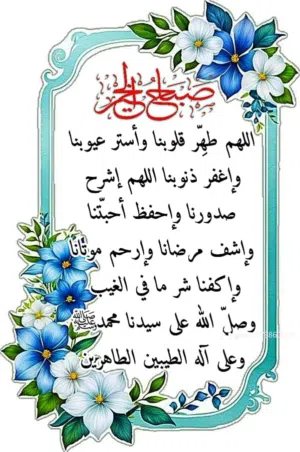 صباح الخير
اللهم طهِّر قلوبنا وأستر عيوبنا
وإغفر ذنوبنا اللهم إشرح
صدورنا وإحفظ أحبتّنا
وإشف مرضانا وإرحم موتانا
وإكفنا شر ما في الغيب
وصلّ الله على سيدنا محمد ﷺ
وعلى آله الطيبين الطاهرين